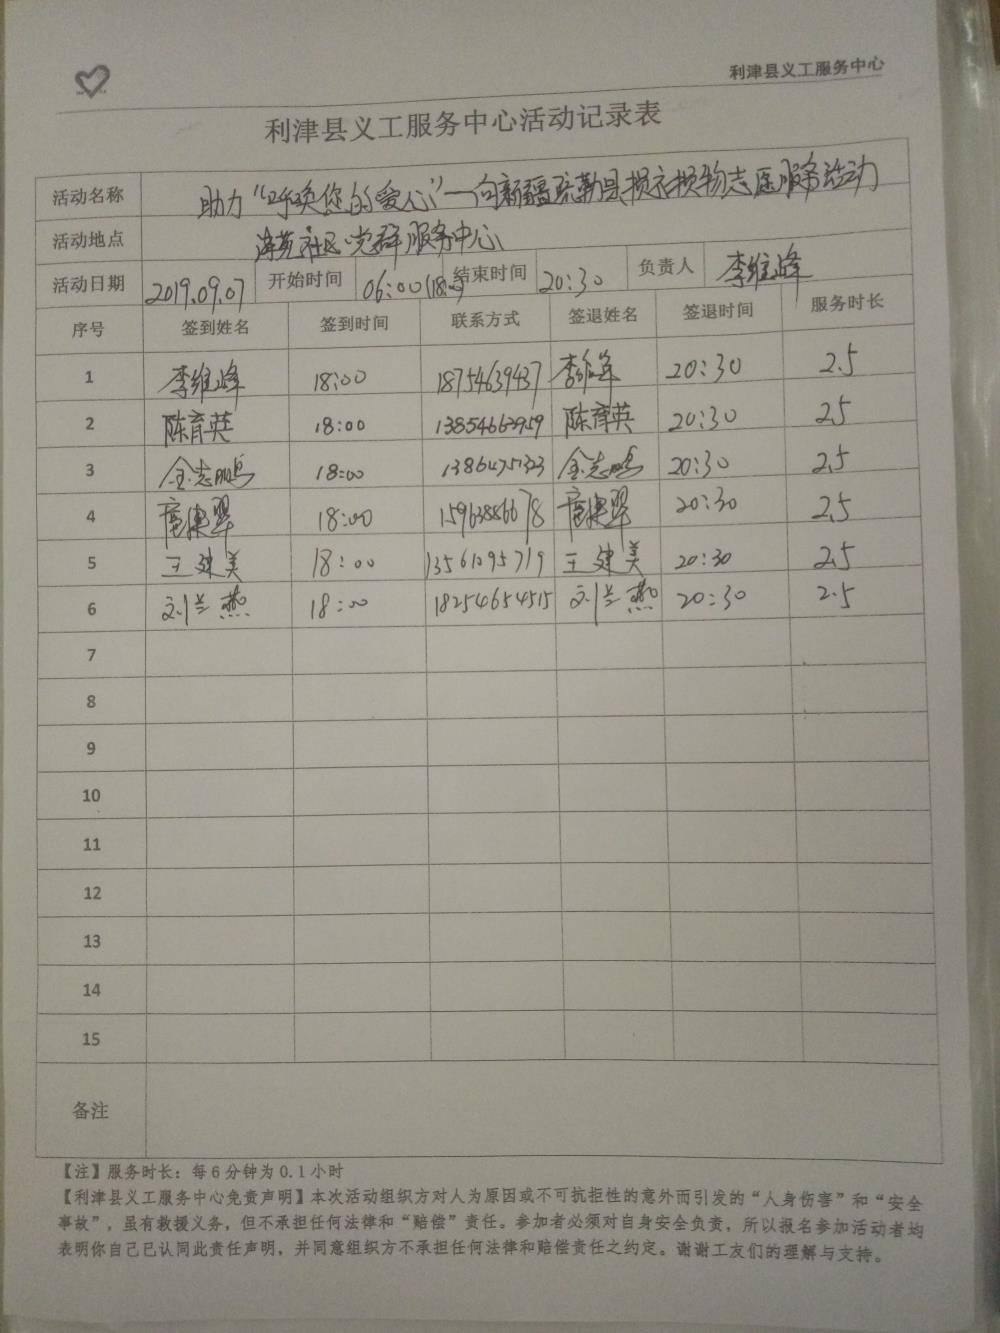 利津县义工服务中心
利津县义工服务中心活动记录表
活动名称 助力“呼唤您的爱心”—向新疆疏勒县捐衣捐物志愿服务活动
活动地点 社区党群服务中心
活动日期 2019.09.07 开始时间 06:00(18:00) 结束时间 20:30 负责人 李维峰
序号 签到姓名 签到时间 联系方式 签退姓名 签退时间 服务时长
1 李维峰 18:00 18754639437 李维峰 20:30 2.5
2 陈育英 18:00 陈育英 20:30 2.5
3 金志鹏 18:00 金志鹏 20:30 2.5
4 18:00 15963886678 20:30 2.5
5 王建美 18:00 13561095719 王建美 20:30 2.5
6 刘兰燕 18:00 18254654515 刘兰燕 20:30 2.5
7
8
9
10
11
12
13
14
15
备注
【注】服务时长：每6分钟为0.1小时
【利津县义工服务中心免责声明】本次活动组织方对人为原因或不可抗拒性的意外而引发的“人身伤害”和“安全
事故”，虽有救援义务，但不承担任何法律和“赔偿”责任。参加者必须对自身安全负责，所以报名参加活动者均
表明你自己已认同此责任声明，并同意组织方不承担任何法律和赔偿责任之约定。谢谢工友们的理解与支持。